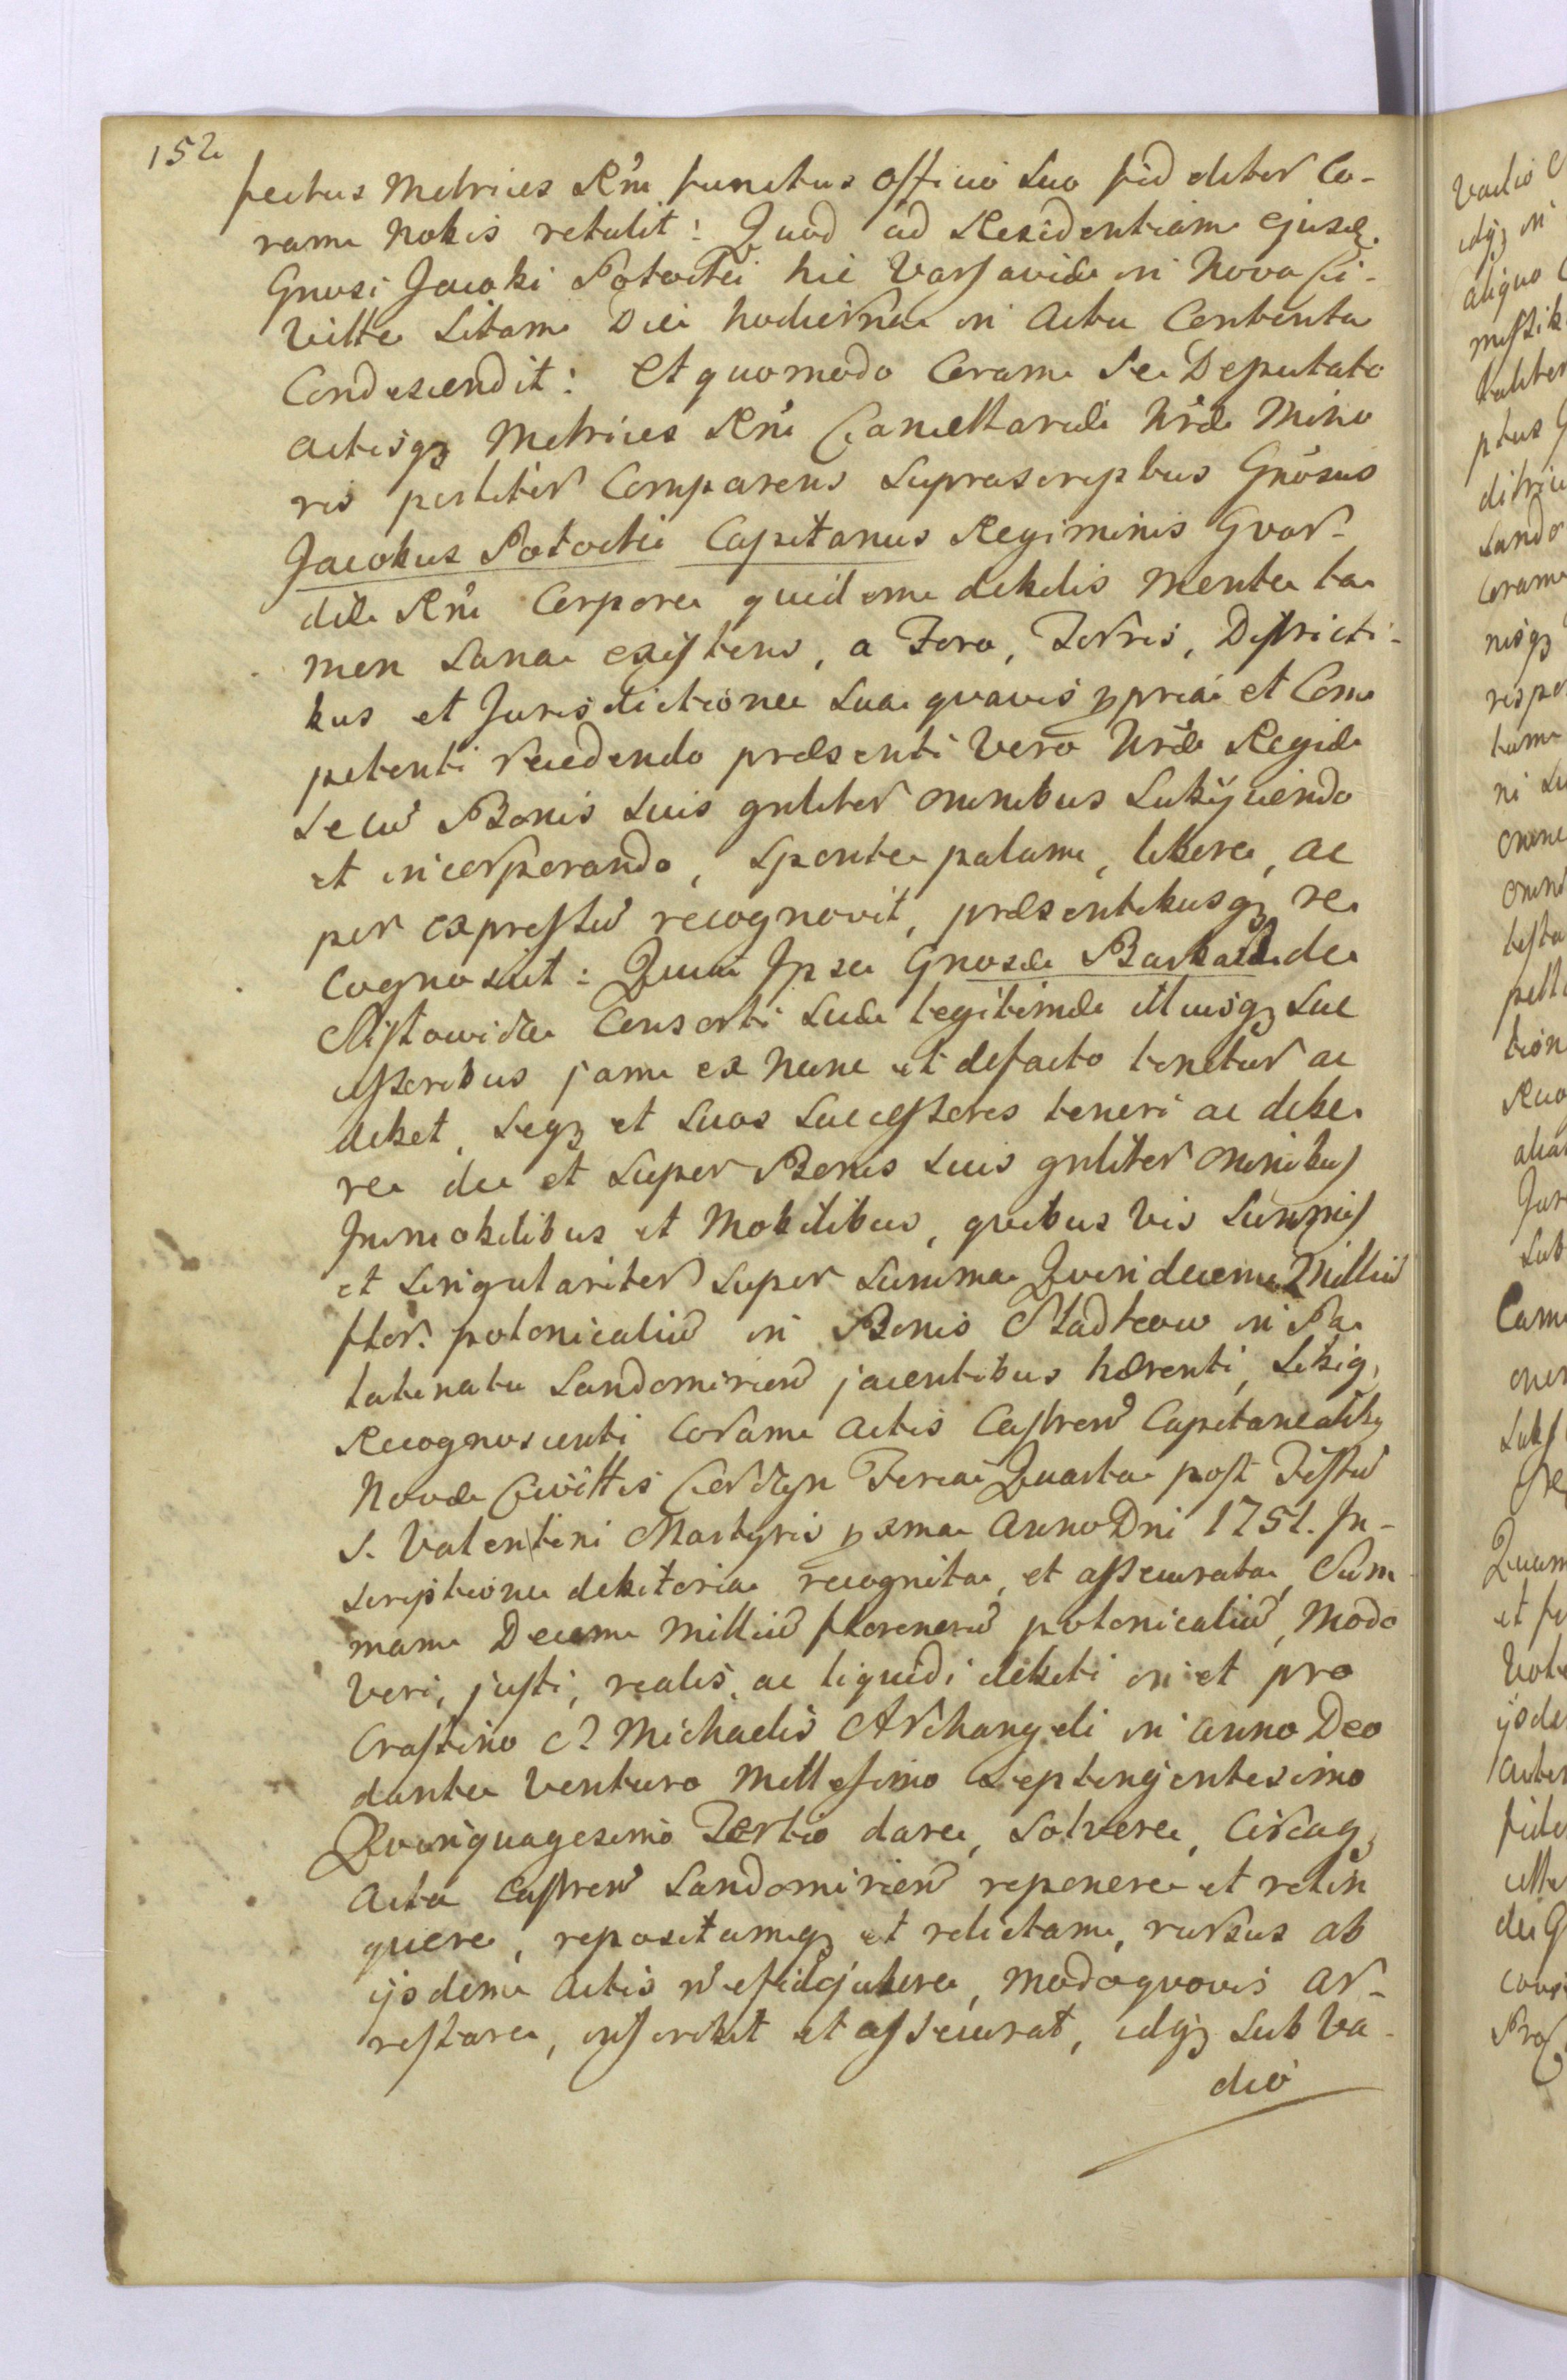 152
fectus Metrices Rni functus officio suo fid eliter Co-
ram Nobis retulit: Quod ad Residentiam ejusd.
Gnosi Jacobi Potocki hic Varsaviæ in Nova Ci-
vitte sitam Die hodierna in Actu Contenta
Condescendit: Et quomodo Coram se Deputato
actisqz Metrices Rni Cancellariæ Nræ Mino
ris psliter Comparens suprascriptus Gnosus
Jacobus Potocki Capitanus Regiminis Gvar-
diæ Rni Corpore quidem debilis Mente ta
men sana existens, a Foro, Terris, Districti-
bus et Jurisdictione sua quavis ppria et Com
petenti recedendo præsenti vero Nræ Regiæ
se cum Bonis suis gnliter omnibus subijciendo
et incorporando, sponte palam, libere, ac
per expressum recognovit, præsentibusqz re
cognoscit: Quia Ipse Gnosæ Barbaræ de
Mstowskie Consorti suæ legitimæ illiusqz Suc
cessoribus jam ex nunc et defacto tenetur ac
debet, seqz et suos successores teneri ac debe
re de et super Bonis suis gnliter omnibus
Immobilibus et Mobilibus, quibus vis summis
et singulariter super summa Quindecem Milliu
flor. polonicaliu in Bonis Sładkow in Pa
latinatu Sandomirien jacentibus hærenti, sibiq,
Recognoscenti Coram Actis Castren Capitanealibz
Novæ Civittis Korczyn Feria Quarta post Festu
S. Valentini Martyris pxma Anno Dni 1751. In-
scriptione debitoria recognita, et assecurata, Sum
mam Decem Milliu florenoru polonicaliu, Modo
veri, justi, realis, ac liquidi debiti in et pro
Crastino S. Michaelis Archangeli in anno Deo
dante venturo Millesimo Septingentesimo
Quinquagesimo Tertio dare, solvere, Circaqz
Acta Castren Sandomirien reponere et relin
quere, repositamqz et relictam, rursus ab
ijsdem Actis modoquovis ar-
restare, inscribit et assecurat, idqz sub Va-
dio